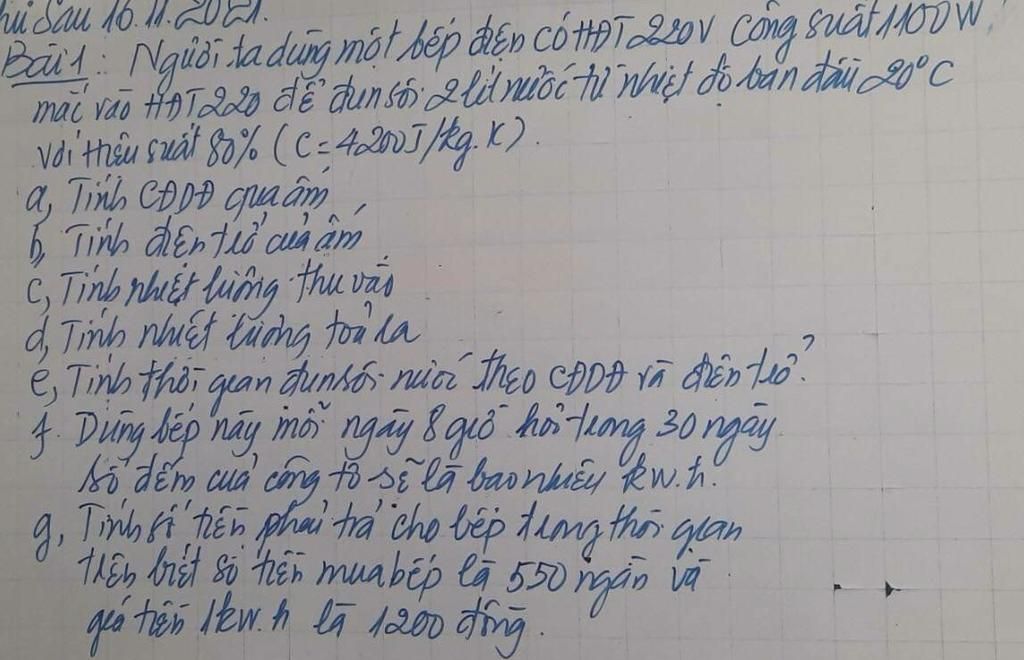 Thứ Sáu 16.11.2021.
Bài 1: Người ta dùng một bếp điện có HĐT 220V công suất 1100W,
mắc vào HĐT 220 để đun sôi 2 lít nước từ nhiệt độ ban đầu 20°C
với hiệu suất 80% (C = 4200J/kg.K).
a, Tính CĐDĐ qua ấm
b, Tính điện trở của ấm
c, Tính nhiệt lượng thu vào
d, Tính nhiệt lượng toả ra
e, Tính thời gian đun sôi nước theo CĐDĐ và điện trở?
f. Dùng bếp này mỗi ngày 8 giờ hỏi trong 30 ngày
số đếm của công tơ sẽ là bao nhiêu kw.h.
g, Tính số tiền phải trả cho bếp trong thời gian
trên biết số tiền mua bếp là 550 ngàn và
giá tiền 1kw.h là 1200 đồng.